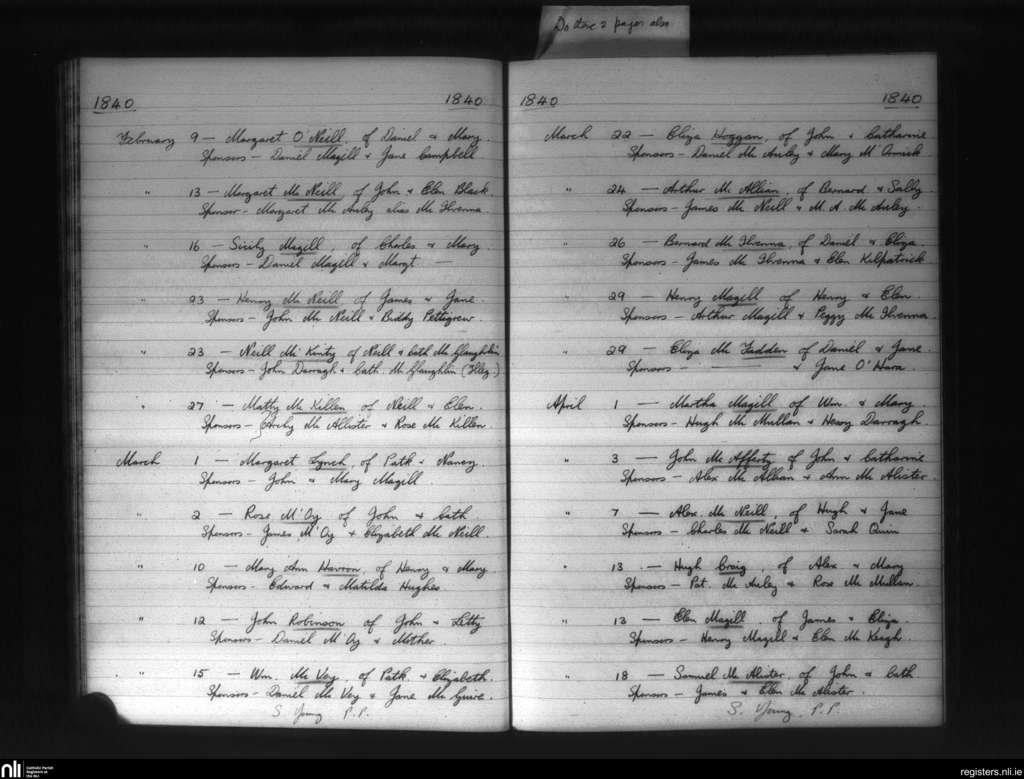 Do these 2 pages also
1840 1840
February 9 — Margaret O'Neill, of Daniel & Mary.
Sponsors — Daniel Magill & Jane Campbell
" 13 — Margaret Mc Neill of John & Elen Black.
Sponsor — Margaret Mc Auley alias Mc Ilvenna.
" 16 — Sicily Magill, of Charles & Mary
Sponsors — Daniel Magill & Margt —
" 23 — Henry Mc Neill of James & Jane.
Sponsors — John Mc Neill & Biddy Pettigrew.
" 23 — Neill Mc Kinty of Neill & Cath Mc Glaughlin
Sponsors — John Darragh & Cath. Mc Glaughlin (Illeg.)
" 27 — Matty Mc Killen of Neill & Elen.
Sponsors — Archy Mc Allister & Rose Mc Killen.
March 1 — Margaret Lynch, of Patk & Nancy.
Sponsors — John & Mary Magill
" 2 — Rose M'Oy of John & Cath.
Sponsors — James M'Oy & Elizabeth Mc Neill.
" 10 — Mary Ann Havron, of Henry & Mary
Sponsors — Edward & Matilda Hughes
" 12 — John Robinson of John & Letty
Sponsors — Daniel M'Oy & Mother.
" 15 — Wm. Mc Vey, of Patk. & Elizabeth.
Sponsors — Daniel Mc Vey & Jane Mc Guire.
S. Young P.P.
1840 1840
March 22 — Eliza Hoggan, of John & Catharine
Sponsors — Daniel Mc Auley & Mary M'Ormick.
" 24 — Arthur Mc Allian, of Bernard & Sally.
Sponsors — James Mc Neill & M. A. Mc Auley.
" 26 — Bernard Mc Ilvenna, of Daniel & Eliza.
Sponsors — James Mc Ilvenna & Elen Kilpatrick
" 29 — Henry Magill of Henry & Elen.
Sponsors — Arthur Magill & Peggy Mc Ilvenna.
" 29 — Eliza Mc Fadden of Daniel & Jane.
Sponsors — — & Jane O'Hara.
April 1 — Martha Magill of Wm. & Mary.
Sponsors — Hugh Mc Mullan & Henry Darragh.
" 3 — John Mc Afferty of John & Catharine
Sponsors — Alex Mc Allian & Ann Mc Alister.
" 7 — Alex. Mc Neill, of Hugh & Jane
Sponsors — Charles Mc Neill & Sarah Quin
" 13 — Hugh Craig, of Alex. & Mary
Sponsors — Pat. Mc Auley & Rose Mc Mullan.
" 13 — Elen Magill, of James & Eliza.
Sponsors — Henry Magill & Elen Mc Keagh.
" 18 — Samuel Mc Alister, of John & Cath
Sponsors — James & Elen Mc Alister.
S. Young. P.P.
nli Catholic Parish Registers at the NLI
registers.nli.ie